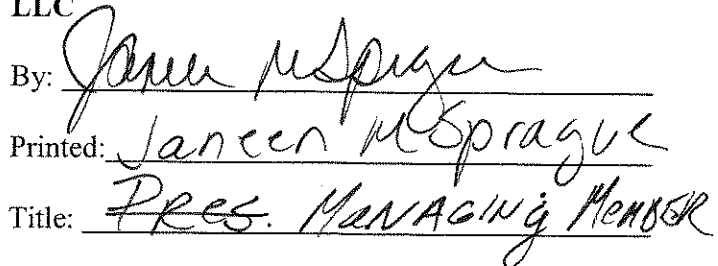 LLC
By: Janeen M Sprague
Printed: Janeen M Sprague
Title: Pres. MANAGING MEMBER